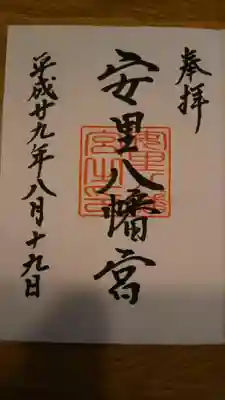 奉拝
安里八幡宮
平成廿九年八月十九日